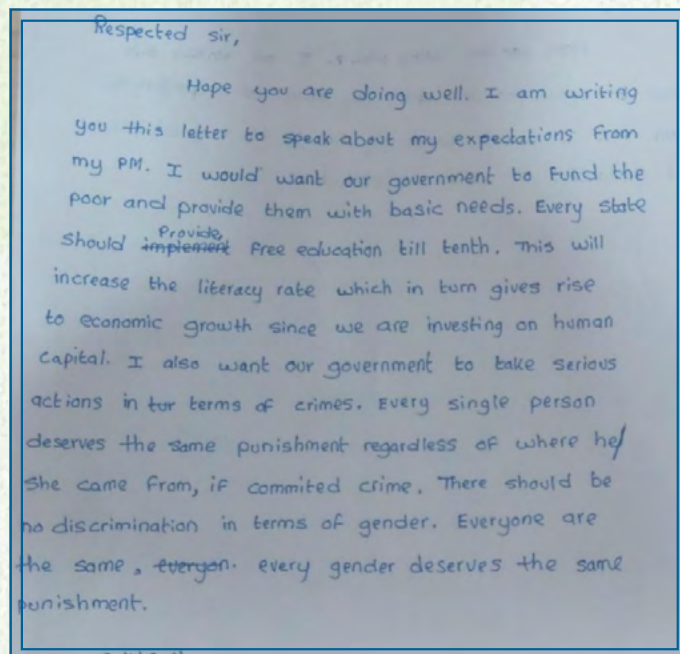 Respected sir,
Hope you are doing well. I am writing
you this letter to speak about my expectations from
my PM. I would want our government to fund the
poor and provide them with basic needs. Every state
should implement Provide, free education till tenth. This will
increase the literacy rate which in turn gives rise
to economic growth since we are investing on human
capital. I also want our government to take serious
actions in tur terms of crimes. Every single person
deserves the same punishment regardless of where he/
she came from, if commited crime. There should be
no discrimination in terms of gender. Everyone are
the same, everyon. every gender deserves the same
punishment.